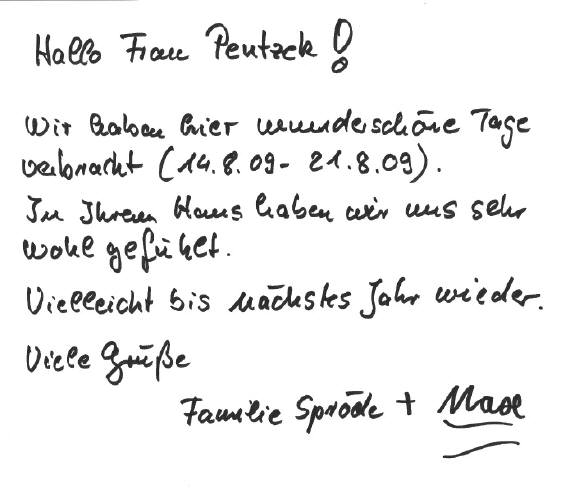 Hallo Frau Pentzek!
Wir haben hier wunderschöne Tage
verbracht (14.8.09 - 21.8.09).
In Ihrem Haus haben wir uns sehr
wohl gefühlt.
Vielleicht bis nächstes Jahr wieder.
Viele Grüße
Familie Spröde +